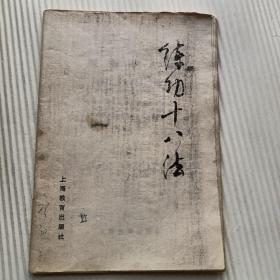 练功十八法
上海教育出版社